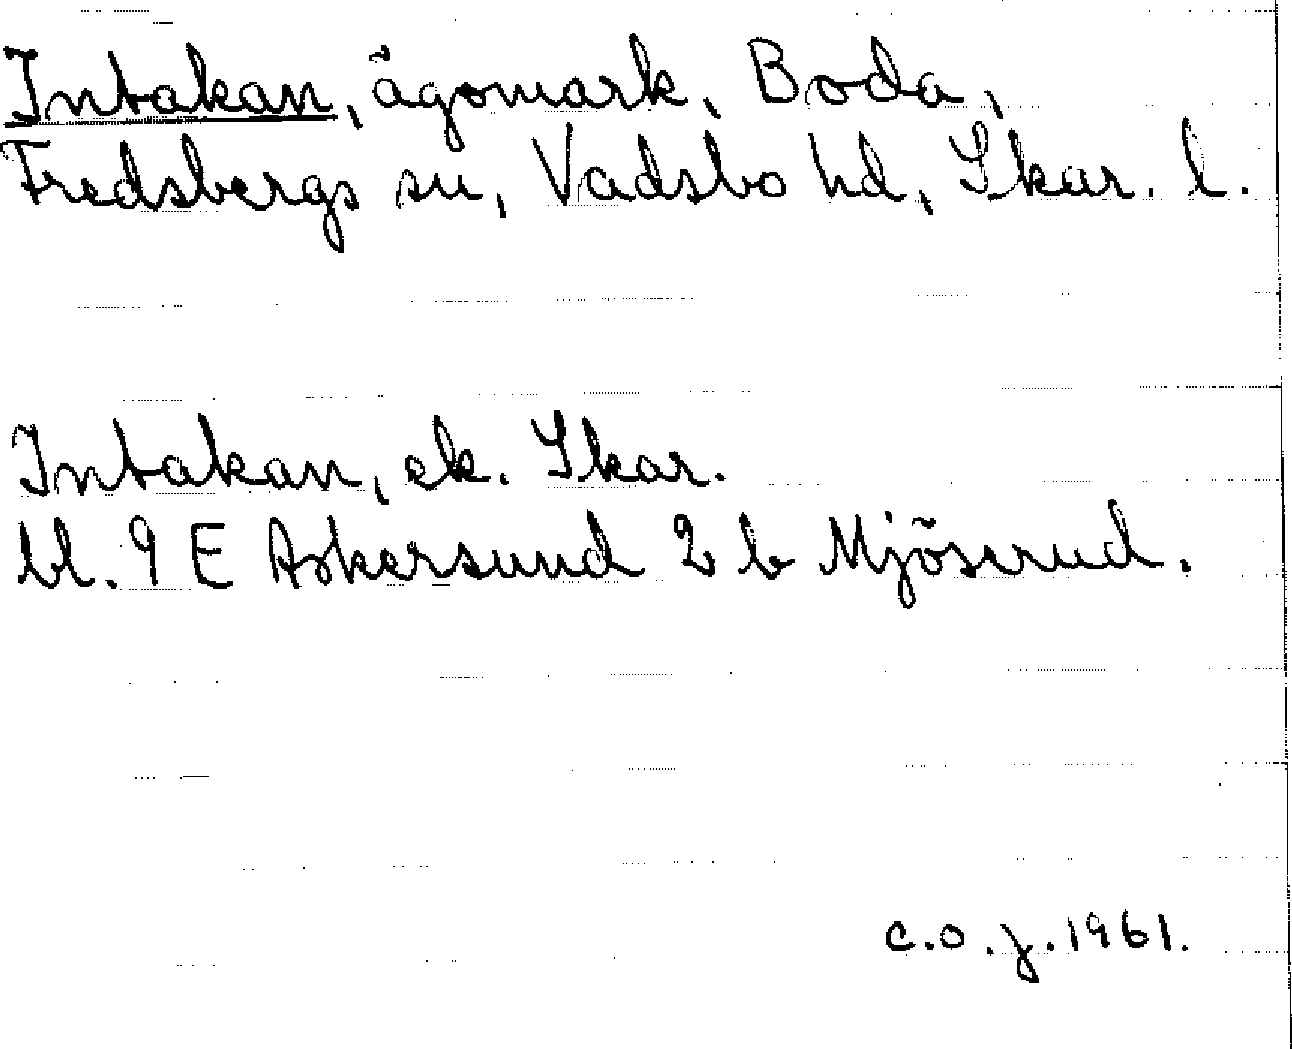 Intakan, ägomark, Boda,
Fredsbergs sn, Vadsbo hd, Skar. l.
Intakan, ek. Skar.
bl. 9 E Askersund 2 b Mjöserud.
C.O.J. 1961.